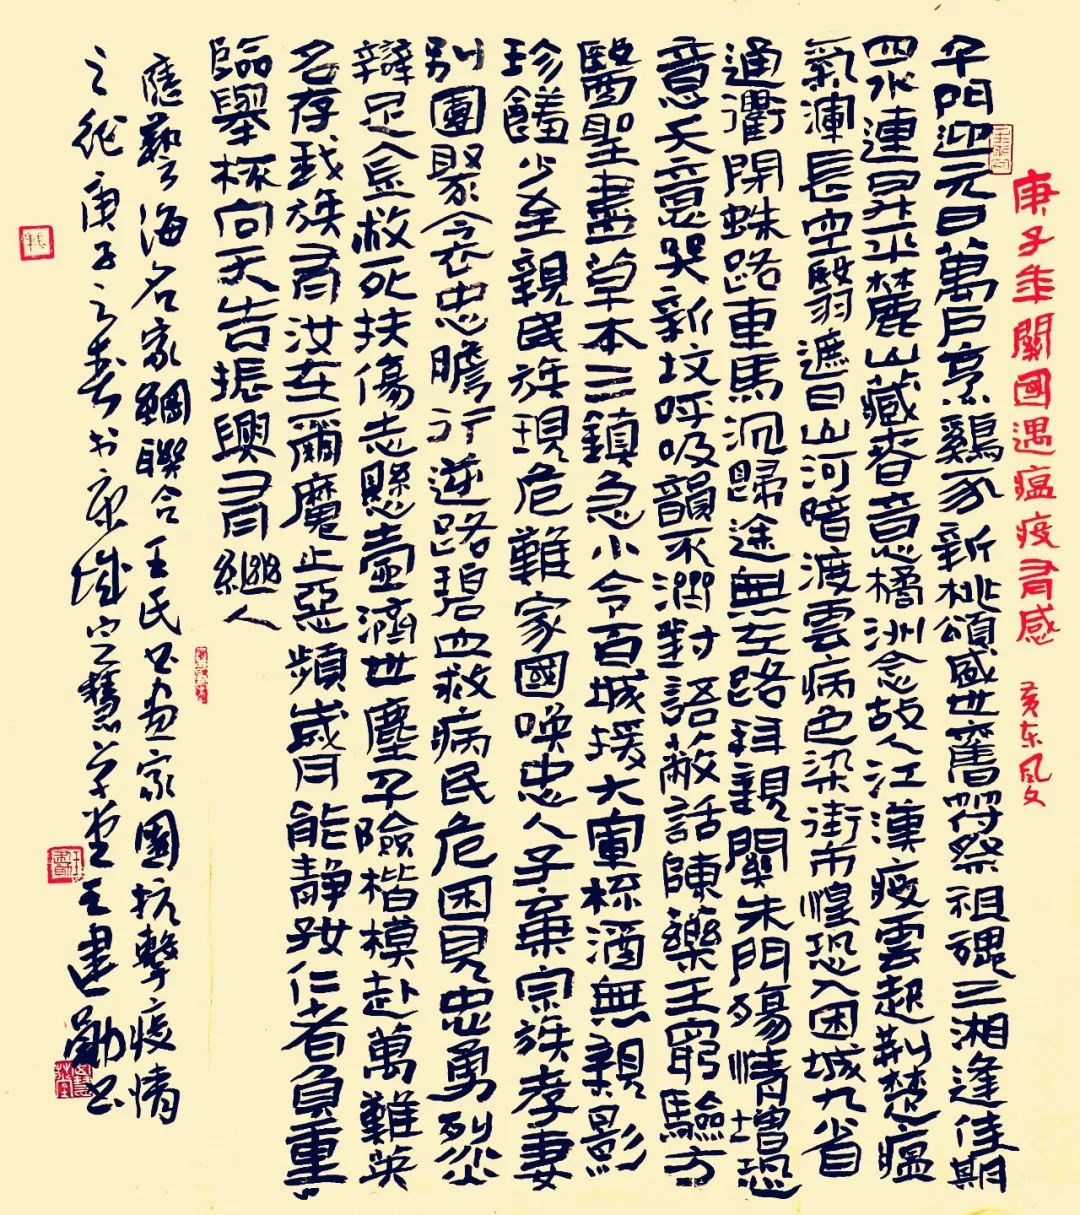 庚子年關國遇瘟疫有感 黃东风文
午門迎元日萬戶烹雞豕新桃頌盛世舊符祭祖魂三湘逢佳期
四水連昇平麓山藏春意橘洲念故人江漢疫雲起荆楚瘟
氣渾長空翳遮日山河暗渡雲病色染街市惶恐入困城九省
通衢閉蛛路車馬沉歸途無左路拜親關朱門殤情增恐
意夭意哭新坟呼吸韻不潤對語敝話陳藥王窮驗方
醫聖盡草本三鎮急小令百城援大軍杯酒無親影
珍饈少至親民族現危難家國喚忠人子棄宗族孝妻
別團聚令衣忠膽行逆路碧血救病民危困見忠勇烈災
辯足金救死扶傷志懸壺濟世塵孕險楷模赴萬難英
名存我族有汝在爾魔止惡頻歲月能靜好仁者負重
臨舉杯向天告振興有繼人
應藝海名家網聯合王氏书画家園抗擊疫情
之征庚子之春书於城之慧草堂王建勤书